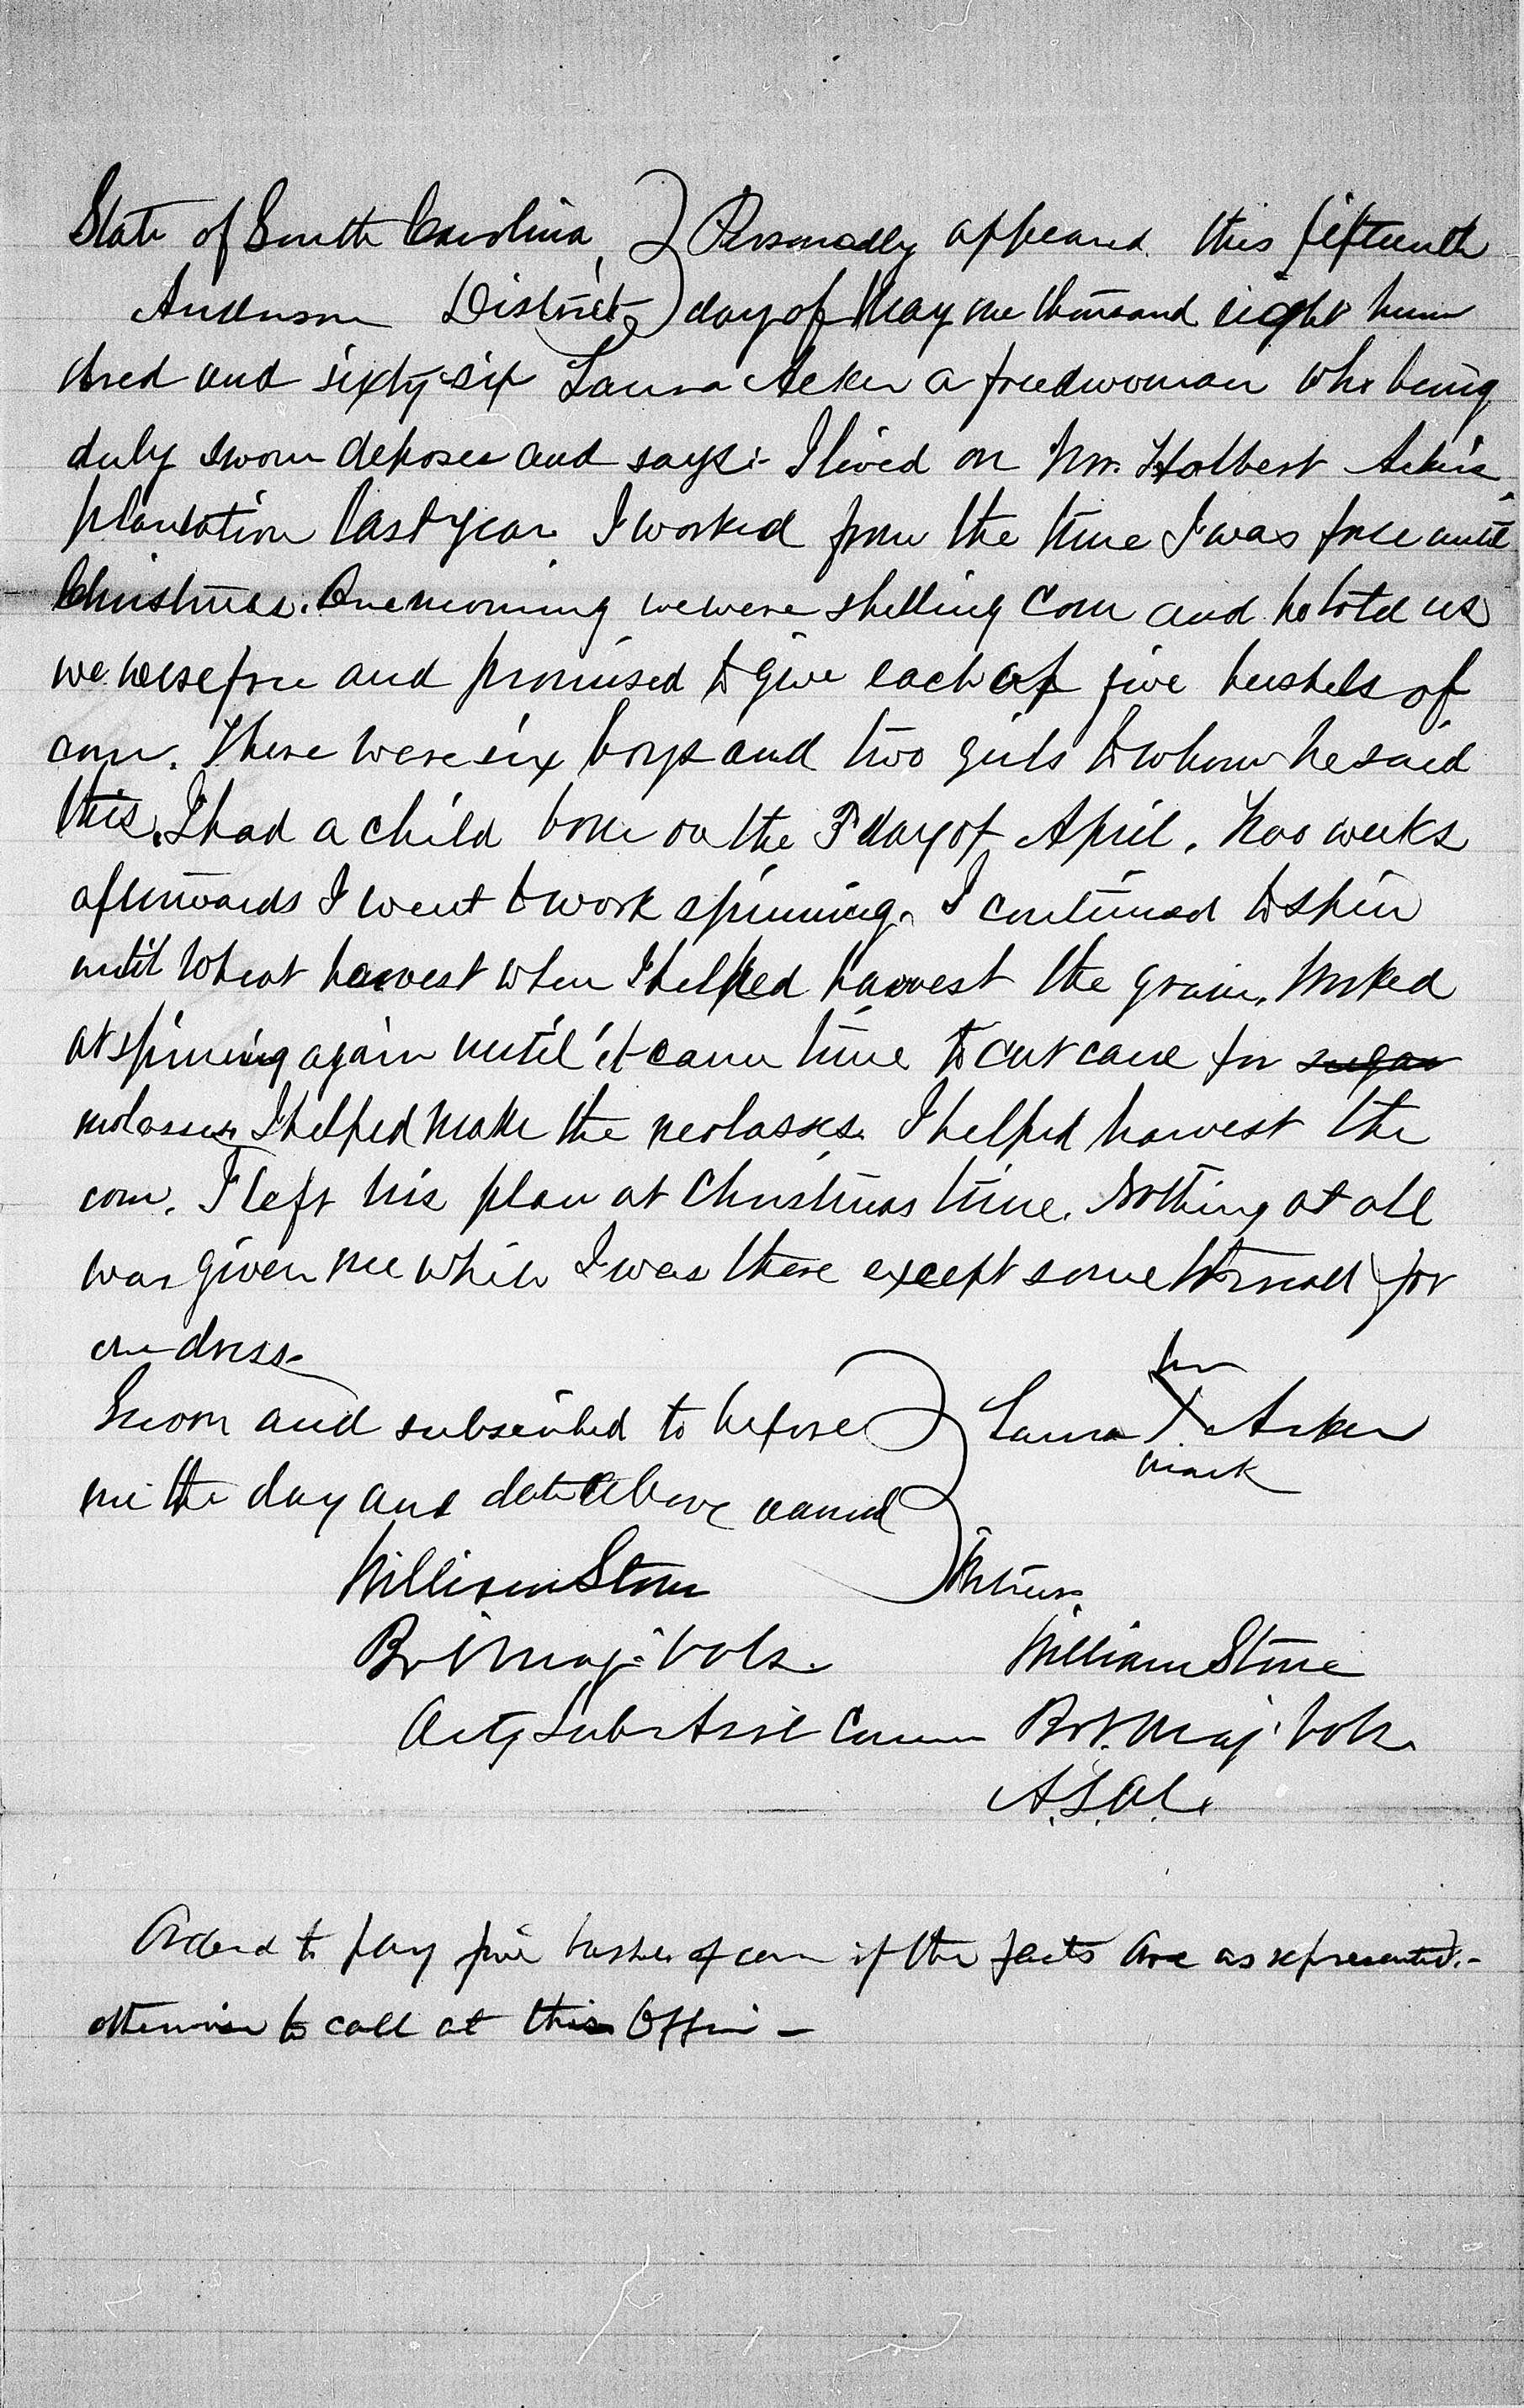 State of South Carolina, } Personally appeared this fifteenth
Anderson District } day of May one thousand eight hun
dred and sixty-six Laura Acker a freedwoman who being
duly sworn deposes and says:- I lived on Mr. Holbert Acker's
plantation last year I worked from the time I was free until
Christmas. One morning we were shelling corn and he told us
we were free and promised to give each of five bushels of
corn. There were six boys and two girls to whom he said
this. I had a child born on the day of April. Two weeks
afterwards I went to work spinning. I continued to spin
until wheat harvest when I helped harvest the grain. Worked
at spinning again until it came time to cut cane for sugar
molasses. I helped make the molasses. I helped harvest the
corn. I left his place at Christmas time. Nothing at all
was given me while I was there except some for
one dress.
her
Sworn and subscribed to before } Laura X Acker
mark
me the day and date above named
William Stone Witness.
Bvt Maj. Vols. William Stone
Actg Sub Asst Comm Bvt. Maj. Vols.
A.S.A.C.
Ordered to pay five bushels of corn if the facts are as represented.-
otherwise to call at this Office -